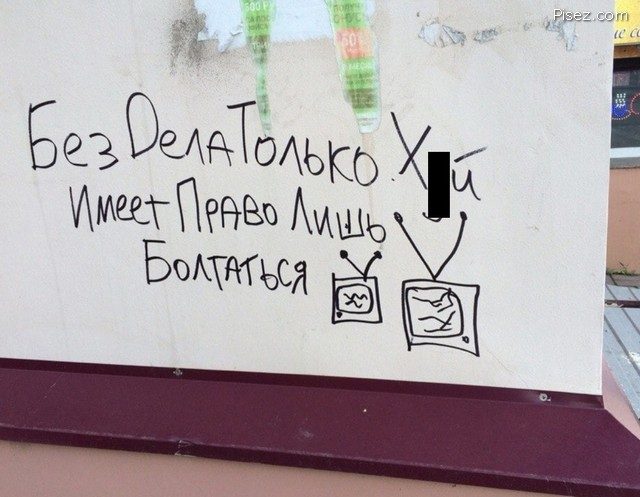 Pisez.com
Без Дела Только Х█й
Имеет Право Лишь
Болтаться